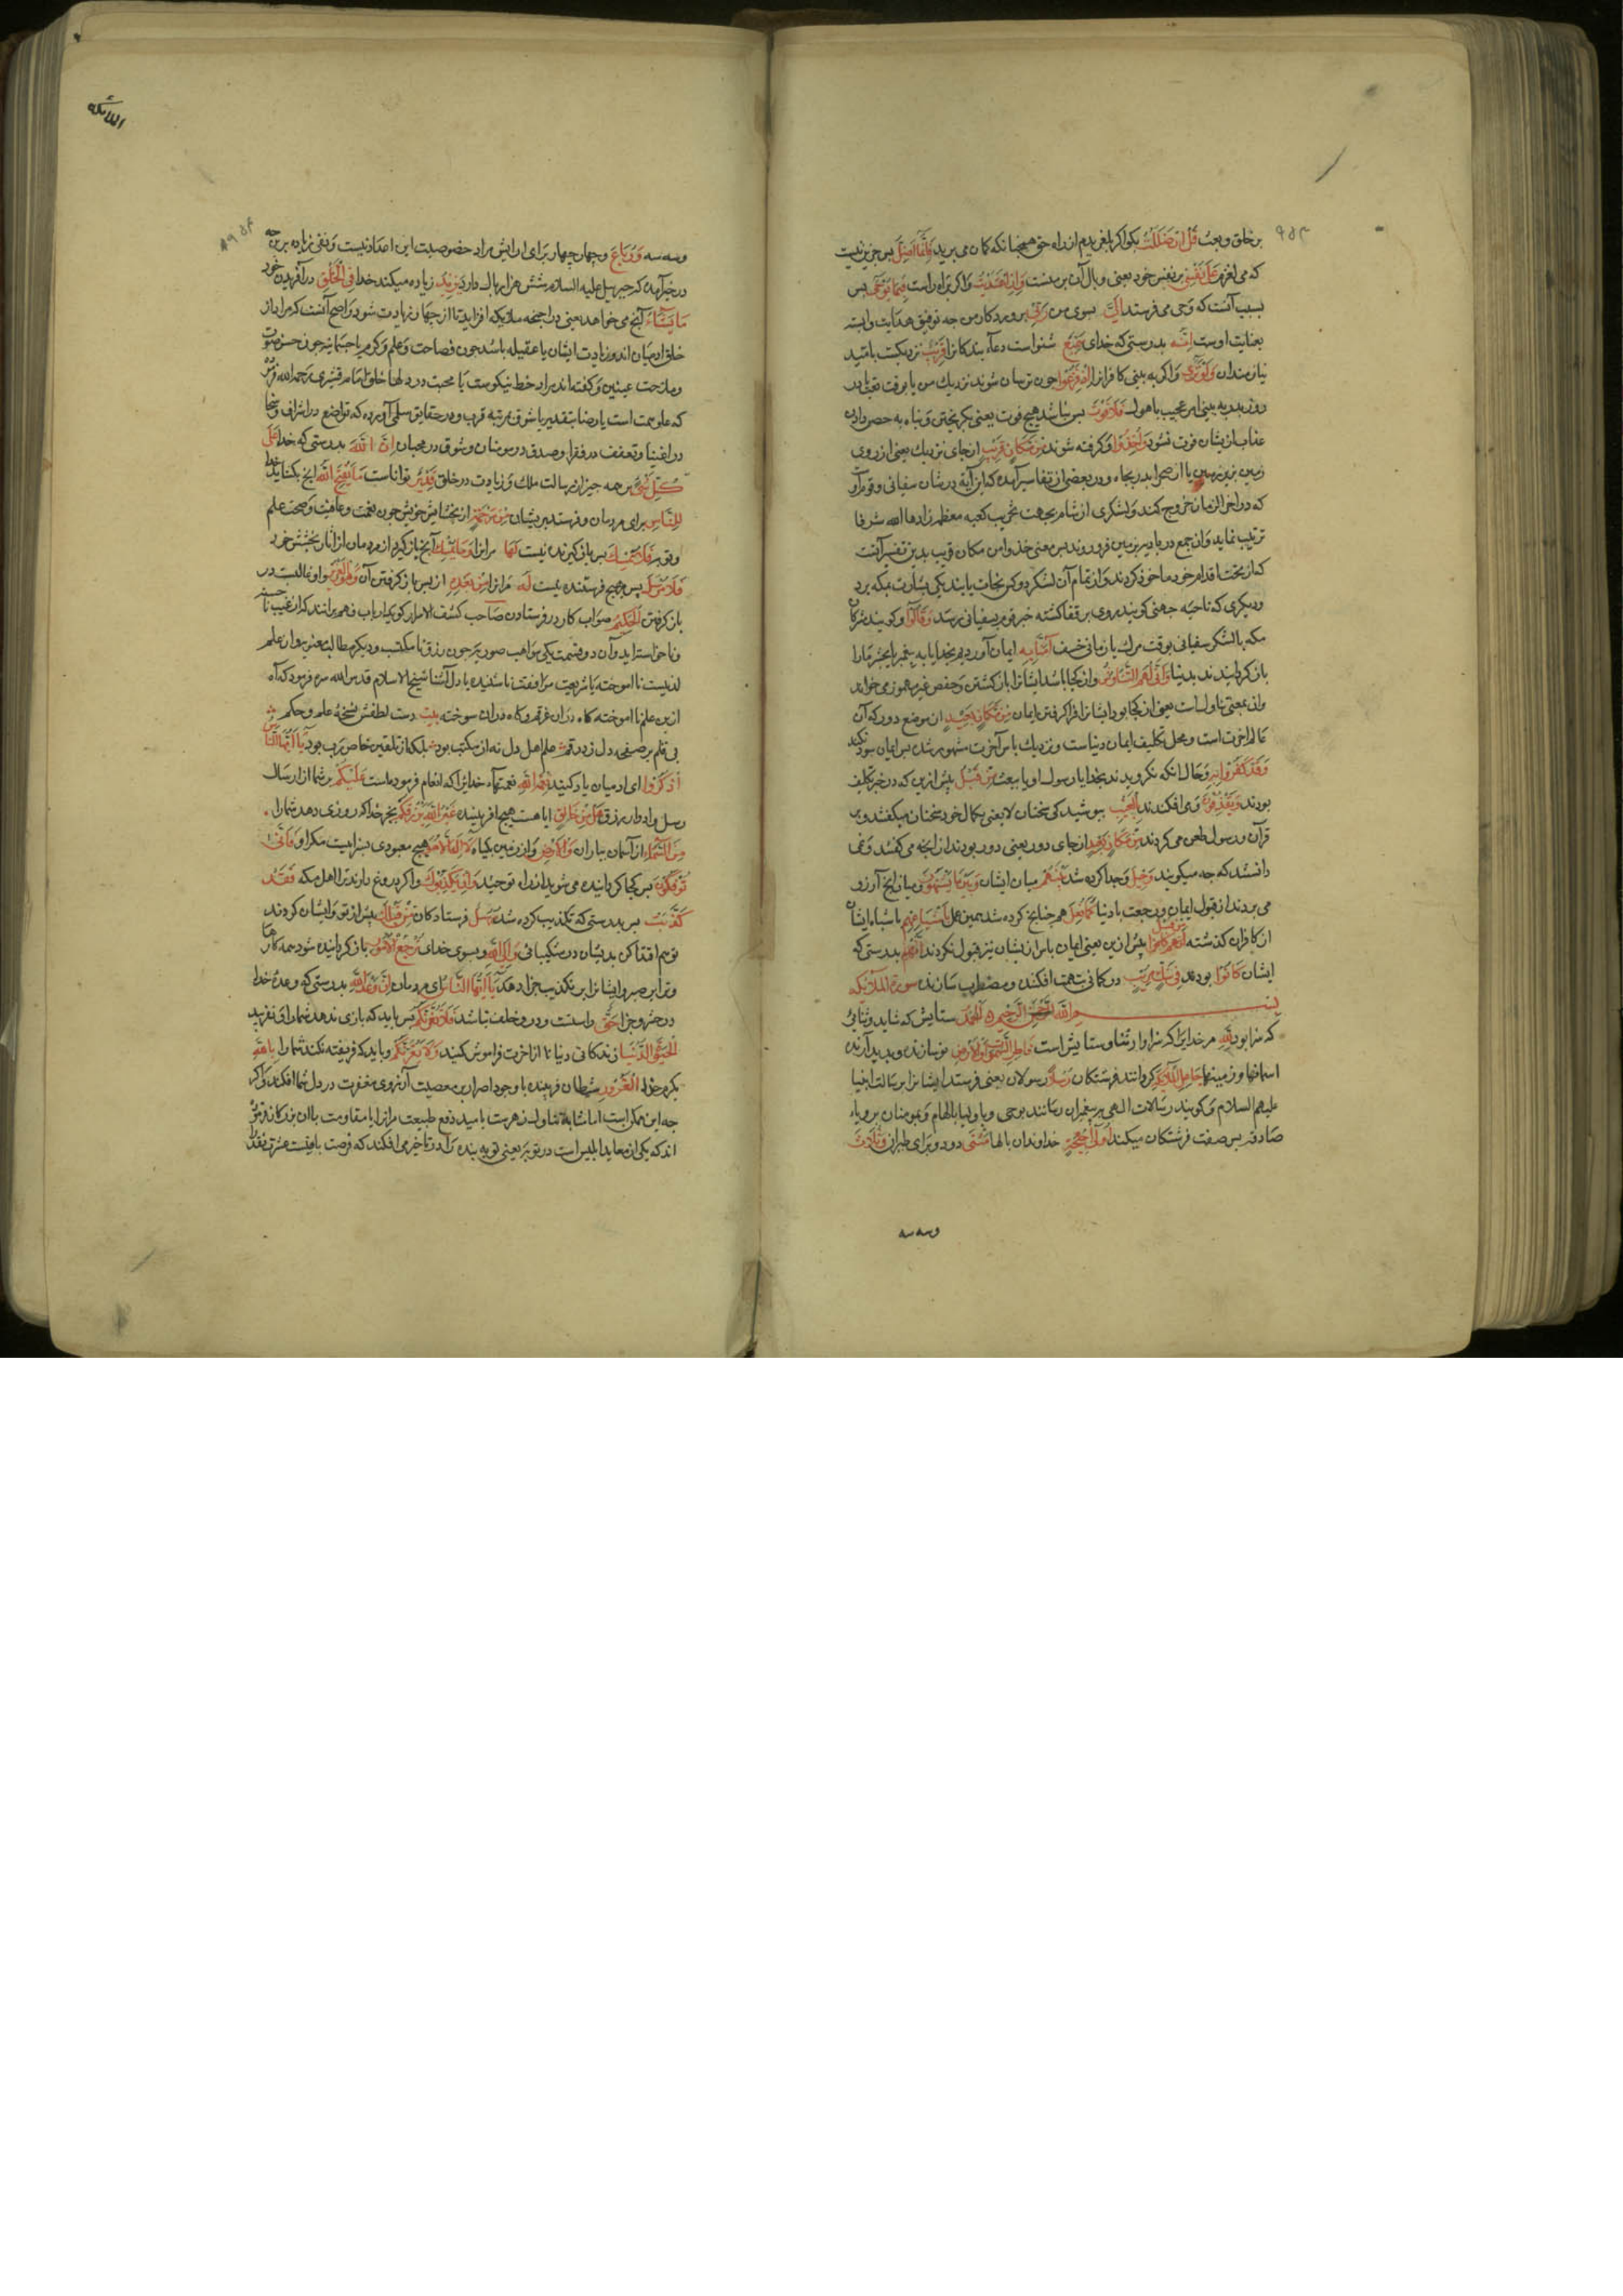 بر خلق و بعث قل ان ضللت بکو اکر بلغزیدم از راه حق همچنانکه کمان می برید فانما اضل بس جزین نیست
که می لغزم علی نفسی بر نفس خود یعنی وبال آن بر منست وان اهتدیت واکر براه راست فبما یوحی بس
بسبب آنست که وحی می فرستد الی بسوی من ربی پروردکار من جه توفیق هدایت وابسته
بعنایت اوست انه بدرستی که خدای سمیع شنواست دعاء بندکانرا قریب نزدیکست بامید
نیازمندان ولو تری واکر به بینی کافرانرا اذ فزعوا جون ترسان شوند نزدیک مرک یا بوقت بعث یا در
روز بدر به بینی امر عجیب با هول فلا فوت بس نباشد هیچ فوت یعنی بکریختن و پناه به حصن دادن
عذاب ازیشان فوت نشود واخذوا وکرفته شوند من مکان قریب از جای نزدیک یعنی از روی
زمین بزیر زمین یا از صحرا بدر بجاه ودر بعضی از تفاسیر آمده که این آیة در شان سفیانی و قوم او
که در اخر الزمان خروج کند ولشکری از شام بجهت تخریب کعبه معظمه زادها الله شرفا
ترتیب نماید وان جمع در بادیه بزمین فرو روند بس معنی خذوا من مکان قریب بدین تفسیر آنست
که از تحت اقدام خود ماخوذ کردند واز تمام آن لشکر دو کس نجات یابند یکی بشارت بمکه برد
ودیکری که ناحیه جهنی کویند روی بر قفا کشته خبر قوم بسفیانی رساند وقالوا وکویند مشرکان
مکه یا لشکر سفیانی بوقت مرک یا زمانی خسف آمنا به ایمان آوردیم بخدای یا به پیغمبر یا بحشر ما را
باز کردانیدند بدنیا وانی لهم التناوش واز کجا باشد ایشانرا باز کشتن وحفص غیر مهموز می خواند
وان بمعنی تناولست یعنی از کجا بود ایشانرا فرا کرفتن ایمان من مکان بعید از موضع دور که آن
عالم اخرت است ومحل تکلیف ایمان دنیاست ونزدیک باس آخرت مشهور شدن بس ایمان سود نکند
وقد کفروا به وحال انکه نکرویدند بخدا یا رسول او یا ببعث من قبل بیش ازین که در حیز تکلیف
بودند ویقذفون ومی افکندند بالغیب ببوشیدکی سخنان لا یعنی بکمال خود سخنان میکفتند ودر
قرآن ورسول طعن می کردند من مکان بعید از جای دور یعنی دور بودند از انجه می کفتند ونمی
دانستند که جه میکویند وحیل وجدا کرده شد بینهم میان ایشان وبین ما یشتهون ومیان انج آرزو
می بردند از قبول ایمان ورجعت با دنیا کما فعل همجنانج کرده شد همین عمل باشیاعهم باشباه ایشان
از کافران کذشته من قبل انهم کانوا بیش ازین یعنی ایمان باس ازیشان نیز قبول نکردند انهم بدرستی که
ایشان کانوا بودند فی شک مریب در کمانی بتهمت افکنده ومضطرب سازنده سورة الملائکه
بسم الله الرحمن الرحیم الحمد ستایش که شاید وثنائی
که سزا بود لله مر خدایرا که سزاوار ثنا وستایش است فاطر السموات والارض نو سازنده وبدید آرنده
اسمانها وزمینها جاعل الملئکة کرداننده فرشتکان رسلا رسولان یعنی فرستد ایشانرا برسالت انبیا
علیهم السلام وکویند رسالات الهی به پیغمبران رسانند بوحی وباولیا بالهام وبمومنان برویاء
صادقه بس صفت فرشتکان میکند اولی اجنحة خداوندان بالها مثنی دو دو برای طیران وثلاث
وسه سه
الملائکه
وسه سه ورباع وچهار چهار برای ارایش مراد خصوصیت این اعداد نیست ونفی زیاده برین جه
در خبر آمده که جبرییل علیه السلام شش هزار بال دارد یزید زیاده میکند خدا فی الخلق در آفریدن خود
ما یشاء آنج می خواهد یعنی در اجنحه ملائکه افزاید تا از جهار زیادت شود واصح آنست که مراد از
خلق ادمیان اند وزیادت ایشان یا عقیله باشد جون فصاحت وعلم وکرم یا جسمانیه جون حسن صوت
وملاحت عینین وکفته اند مراد خط نیکوست یا محبت در دلها خلق امام قشیری رحمه الله فرمود
که علو همت است یا رضا بتقدیر یا شرف مرتبه قرب ودر حقایق سلمی آورده که تواضع در اشراف وسخا
در اغنیا وتعفف در فقرا وصدق در مومنان وشوق در محبان ان الله بدرستی که خدا علی
کل شیء بر همه جیز از رسالت ملک وزیادت در خلق قدیر تواناست ما یفتح الله انج بکشاید خدا
للناس برای مردمان وفرستد بریشان من رحمة از بخشایش خویش جون نعمت وعافیت وصحت علم
وتوبه فلا ممسک بس باز کیرنده نیست لها مرانرا وما یمسک آنج باز کیرد از مردمان از اثار بخشش خود
فلا مرسل پس هیج فرستنده نیست له مرانرا من بعده از پس باز کرفتن آن وهو العزیز واو غالبست در
باز کرفتن الحکیم صواب کار در فرستادن صاحب کشف الاسرار کوید ارباب فهم دانند که از غیب
وناخواسته اید وآن دو قسمت یکی مواهب صوریه جون رزق نا مکتسب ودیکر مطالب معنویه وان علم
لدنیست نا اموخته یا شریعت موافقت نا شنیده با دل آشنا شیخ الاسلام قدس الله سره فرمود که آه
ازین علم نا اموخته کاه دران غرقم وکاه دران سوخته بیت دست لطفش نسخه علم وحکم
بی قلم بر صفحه دل زد رقم علم اهل دل نه از مکتب بود بلکه از تلقین خاص رب بود یا ایها الناس
اذکروا ای ادمیان یاد کنید نعمة الله نعمتهاء خدایرا که انعام فرموده است علیکم بر شما از ارسال
رسل وادرار رزق هل من خالق ایا هست هیچ افریننده غیر الله یرزقکم بجز خدا که روزی دهد شما را
من السماء از آسمان بباران والارض واز زمین بکیاه لا اله الا هو هیچ معبودی بسزا نیست مکر او فانی
تؤفکون بس کجا کردانیده می شوید از راه توحید وان یکذبوک واکر دروغ دارند ترا اهل مکه فقد
کذبت بس بدرستی که تکذیب کرده شد رسل فرستادکان من قبلک پیش از تو وایشان کردند
تو هم اقتدا کن بدیشان در شکیبائی والی الله وبسوی خدای ترجع الامور باز کردانیده شود همه کارها
وترا بر صبر وایشانرا بر تکذیب جزا دهد یا ایها الناس ای مردمان ان وعد الله بدرستی که وعده خدا
در حشر وجزا حق راست ودرو خلف نباشد فلا تغرنکم بس باید که بازی ندهد شما را وی نفریبد
الحیوة الدنیا زندکانی دنیا تا از اخرت فراموش کنید ولا یغرنکم وباید که فریفته نکند شما را بالله
بکرم خدا الغرور شیطان فریبنده با وجود اصرار بر معصیت آرزوی مغفرت در دل شما افکند واکر
جه این ممکن است اما بمثابه تناول زهرست بامید دفع طبیعت مرانرا با مقاومت با ان بزرکان فرموده
اند که یکی از مکاید ابلیس است در توبه یعنی توبه بنده را در تاخیر می افکند که فرصت باقیست